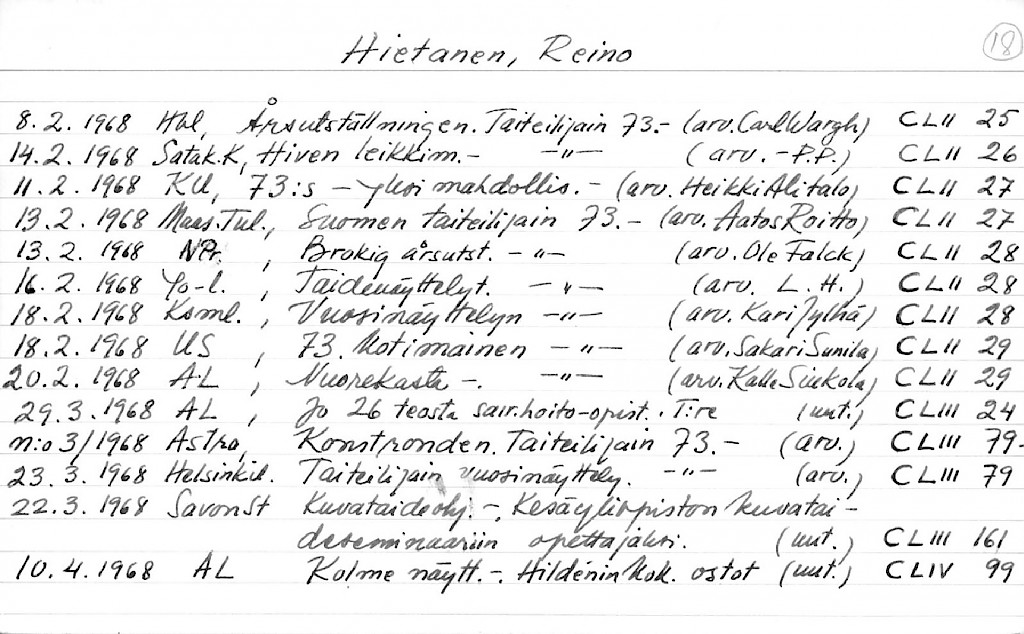 18
Hietanen, Reino
8.2.1968 Hbl, Årsutställningen. Taiteilijain 73.- (arv. Carl Wargh) CLII 25
14.2.1968 Satak.K, Hiven leikkim.- -"- (arv. -P.P.) CLII 26
11.2.1968 KU, 73:s - yksi mahdollis.- (arv. Heikki Alitalo) CLII 27
13.2.1968 Maas.Tul., Suomen taiteilijain 73.- (arv. Aatos Roitto) CLII 27
13.2.1968 NPr. , Brokig årsutst. - -"- (arv. Ole Falck) CLII 28
16.2.1968 Yo-l. , Taidenäyttelyt. -"- (arv. L.H.) CLII 28
18.2.1968 Koml. , Vuosinäyttelyn -"- (arv. Kari Jylhä) CLII 28
18.2.1968 US , 73. Kotimainen -"- (arv. Sakari Sunila) CLII 29
20.2.1968 AL , Nuorekasta -. -"- (arv. Kalle Siukola) CLII 29
29.3.1968 AL , Jo 26 teosta sair.hoito-opist. T:re (uut.) CLIII 24
n:o 3/1968 Astra, Konstronden. Taiteilijain 73.- (arv.) CLIII 79.
23.3.1968 Helsinkil. Taiteilijain vuosinäyttely. -"- (arv.) CLIII 79
22.3.1968 SavonSt Kuvataideohj. -. Kesäyliopiston kuvatai-
deseminaariin opettajaksi. (uut.) CLIII 161
10.4.1968 AL Kolme näytt. -. Hildénin kok. ostot (uut.) CLIV 99